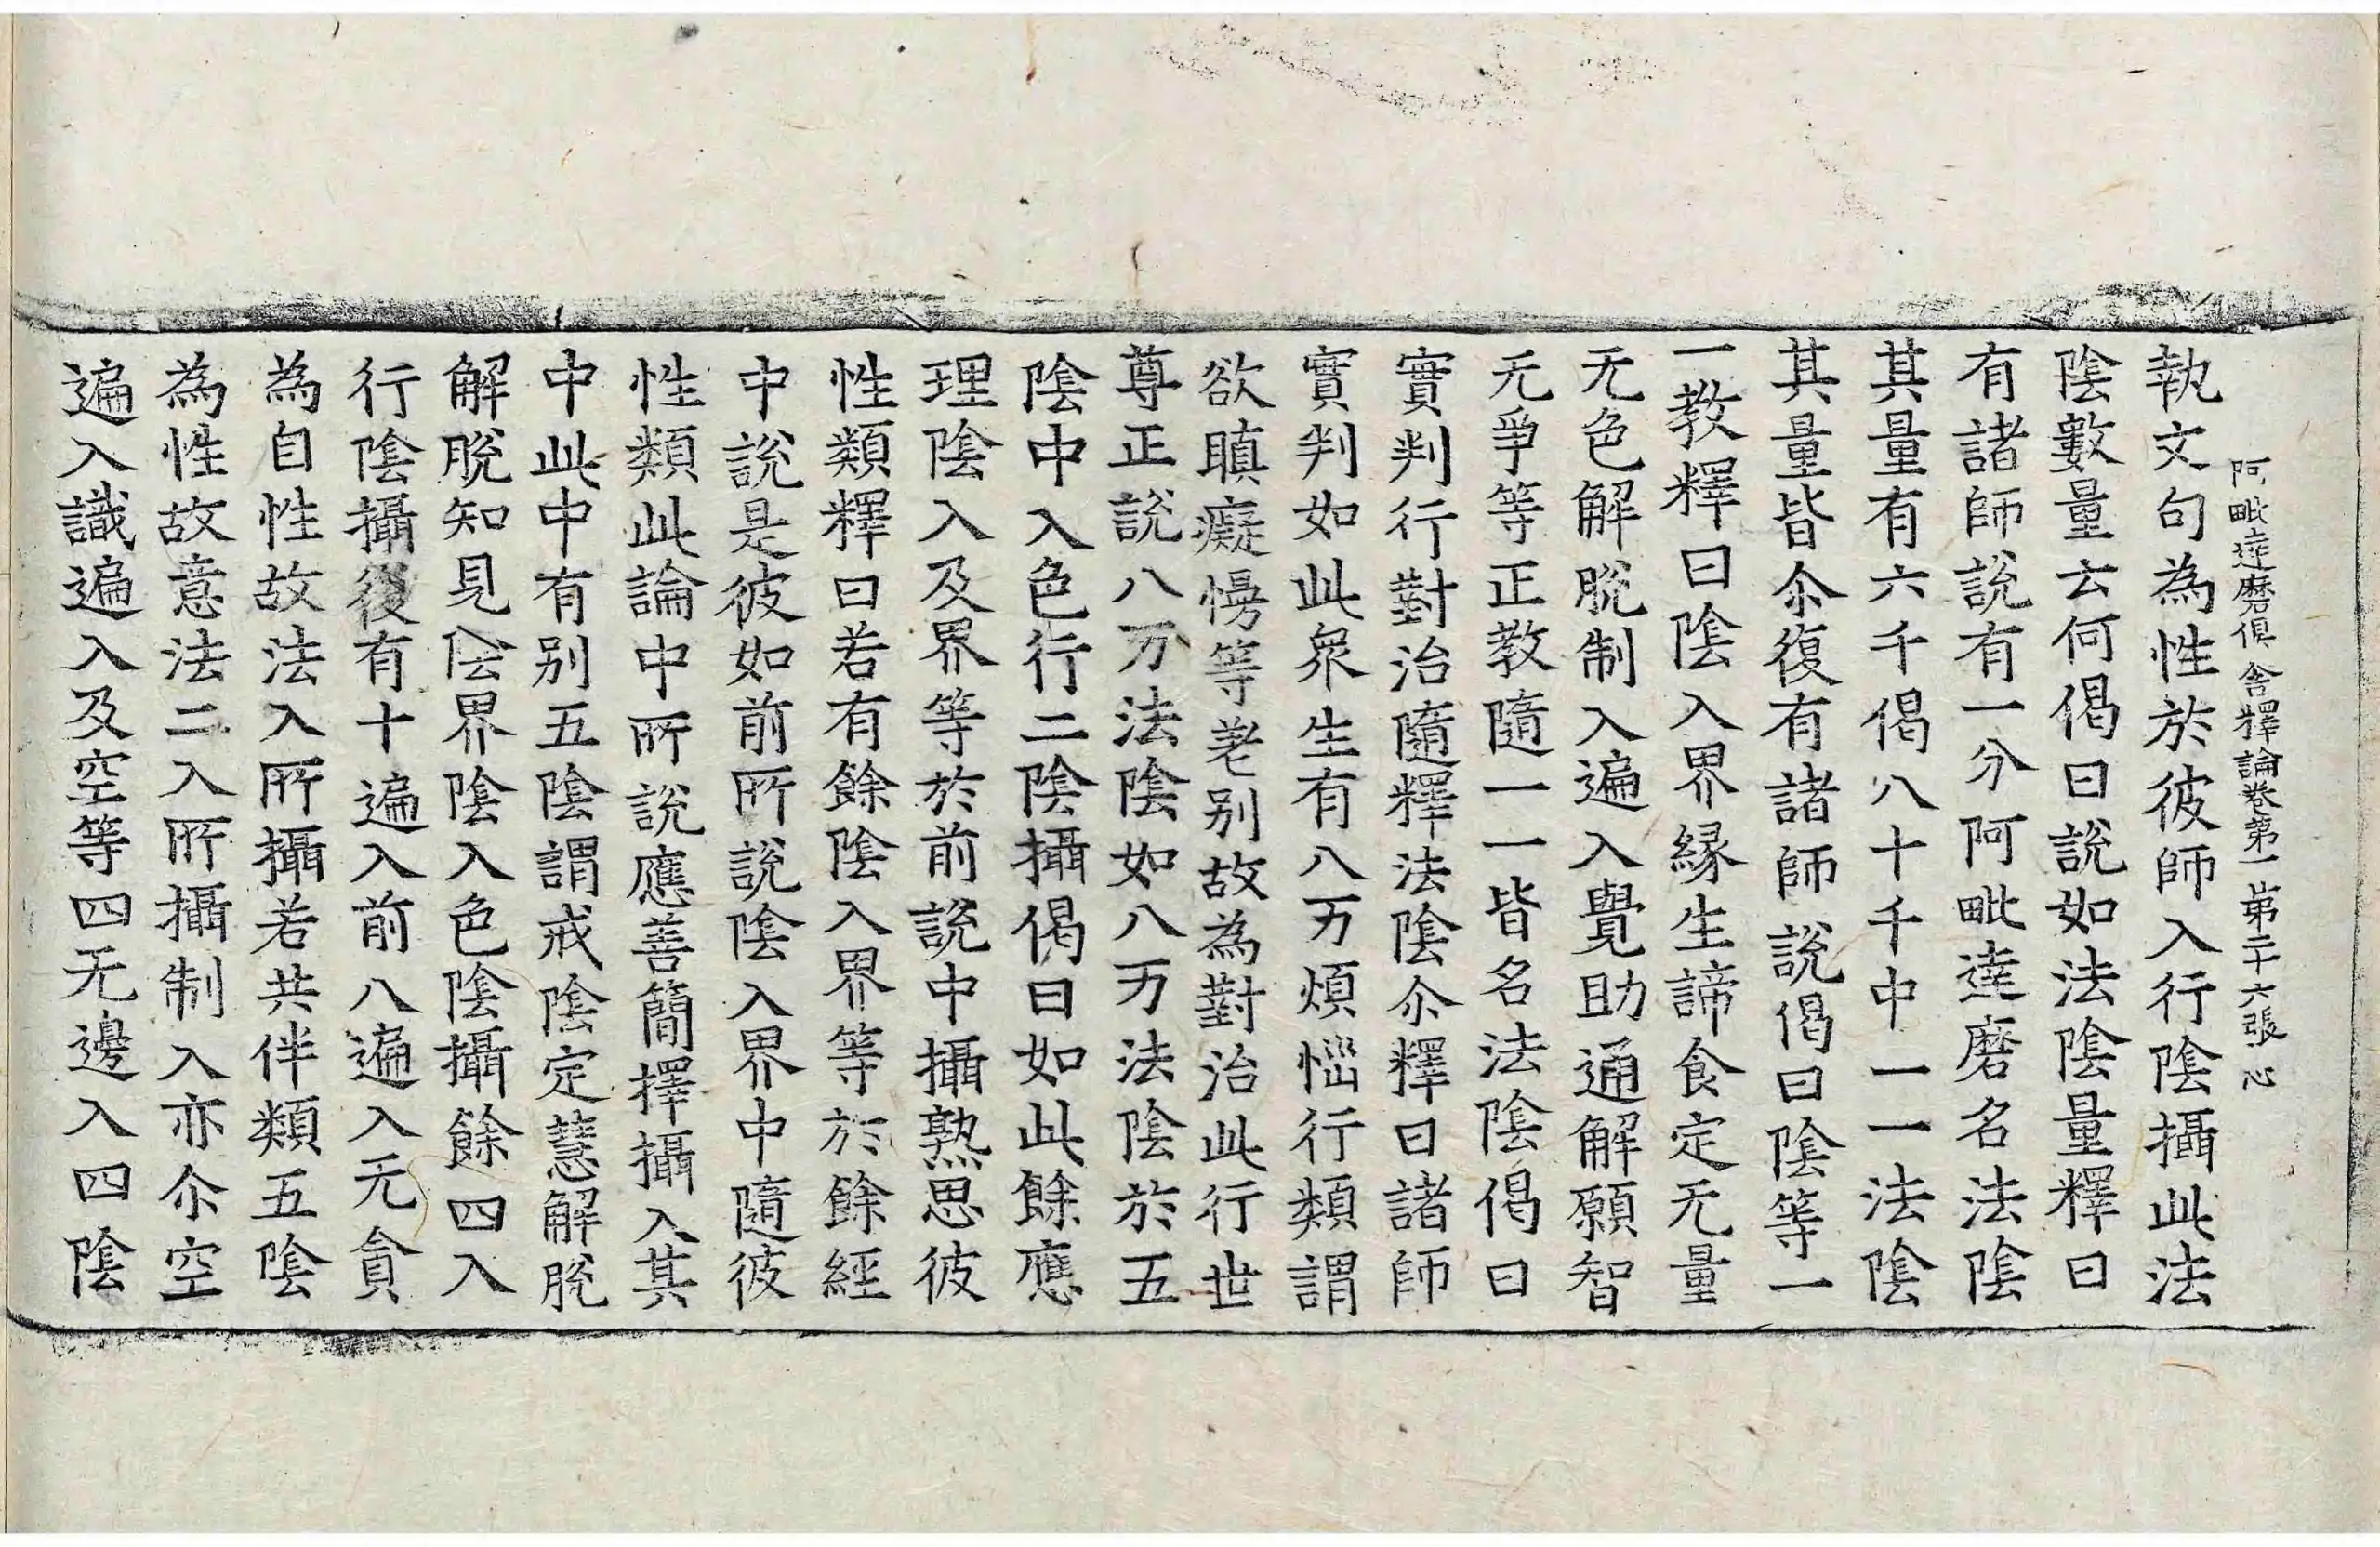 阿毗達磨俱舍釋論卷第一 第二十六張 心
執文句為性於彼師入行陰攝此法
陰數量云何偈曰說如法陰量釋曰
有諸師說有一分阿毗達磨名法陰
其量有六千偈八十千中一一法陰
其量皆尒復有諸師說偈曰陰等一
一教釋曰陰入界緣生諦食定无量
无色解脫制入遍入覺助通解願智
无爭等正教隨一一皆名法陰偈曰
實判行對治隨釋法陰尒釋曰諸師
實判如此眾生有八万煩惱行類謂
欲瞋癡慢等差别故為對治此行世
尊正說八万法陰如八万法陰於五
陰中入色行二陰攝偈曰如此餘應
理陰入及界等於前說中攝熟思彼
性類釋曰若有餘陰入界等於餘經
中說是彼如前所說陰入界中隨彼
性類此論中所說應善簡擇攝入其
中此中有别五陰謂戒陰定慧解脫
解脫知見陰界陰入色陰攝餘四入
行陰攝後有十遍入前八遍入无貪
為自性故法入所攝若共伴類五陰
為性故意法二入所攝制入亦尒空
遍入識遍入及空等四无邊入四陰